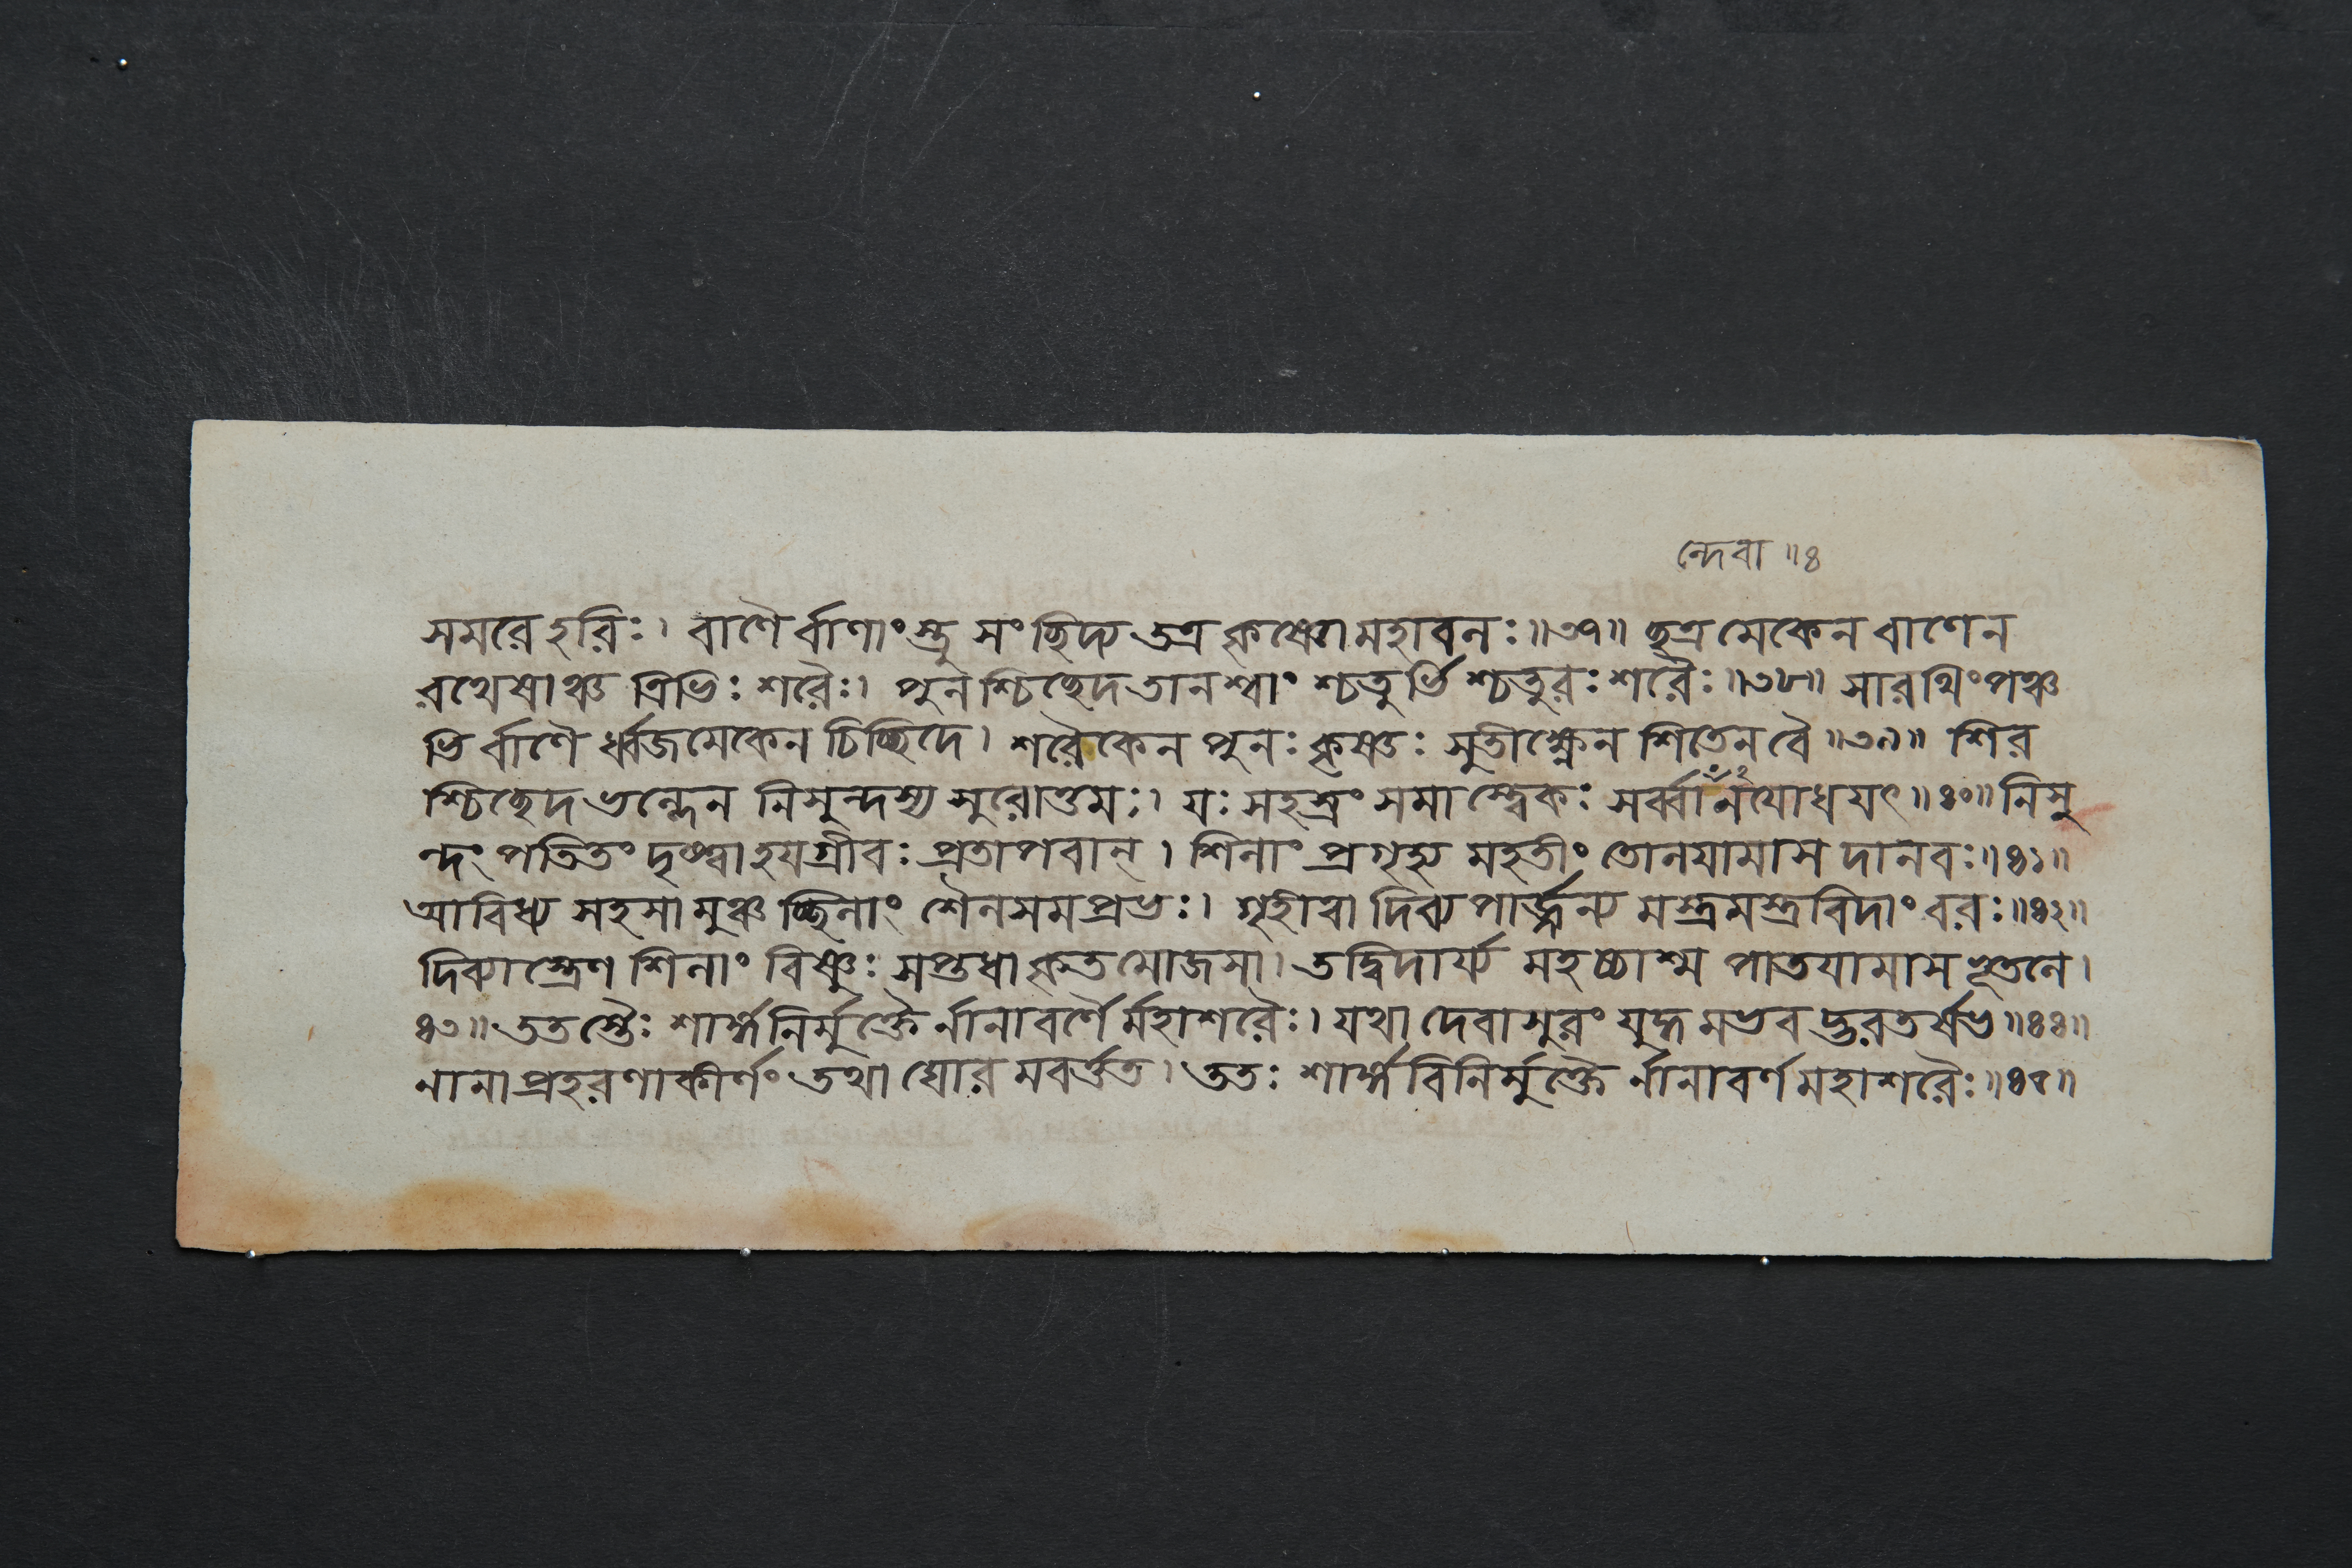 ন্দেবা ॥৪
সমরে হরিঃ। বাণৈর্বাণাংস্তু সংছিদ্য তত্র কৃষ্ণো মহাবলঃ॥৩৭॥ ছত্রমেকেন বাণেন
রথেষাঞ্চ ত্রিভিঃ শরৈঃ। পুনশ্চিচ্ছেদ তানশ্বাং শ্চতুর্ভিশ্চতুরঃ শরৈঃ॥৩৮॥ সারথিং পঞ্চ
ভির্বাণৈর্ধ্বজমেকেন চিচ্ছিদে। শরৈকেন পুনঃ কৃষ্ণঃ সুতীক্ষ্ণেন শিতেন বৈ॥৩৯॥ শির
শ্চিচ্ছেদ ভল্লেন নিসুন্দস্য সুরোত্তমঃ। যঃ সহস্রং সমাস্ত্বেকঃ সর্ব্বানযোধয়ৎ॥৪০॥ নিসু
ন্দং পতিতং দৃষ্ট্বা হয়গ্রীবঃ প্রতাপবান্। শিলাং প্রগৃহ্য মহতীং তোলয়ামাস দানবঃ॥৪১॥
আবিধ্য সহসামুঞ্চচ্ছিলাং শৈলসমপ্রভঃ। গৃহীত্বা দিব্যপার্জ্জন্য মস্ত্রমস্ত্রবিদাং বরঃ॥৪২॥
দিব্যাস্ত্রেণ শিলাং বিষ্ণুঃ সপ্তধাকৃতমোজসা। তদ্বিদার্য্য মহচ্চাশ্ম পাতয়ামাস ভূতলে।
৪৩॥ ততস্তৈঃ শার্ঙ্গনির্মুক্তৈর্নানাবর্ণৈর্মহাশরৈঃ। যথা দেবাসুরং যুদ্ধমভবদ্ভরতর্ষভ॥৪৪॥
নানাপ্রহরণাকীর্ণং তথা ঘোরমবর্ত্তত। ততঃ শার্ঙ্গবিনির্মুক্তৈর্নানাবর্ণমহাশরৈঃ॥৪৫॥